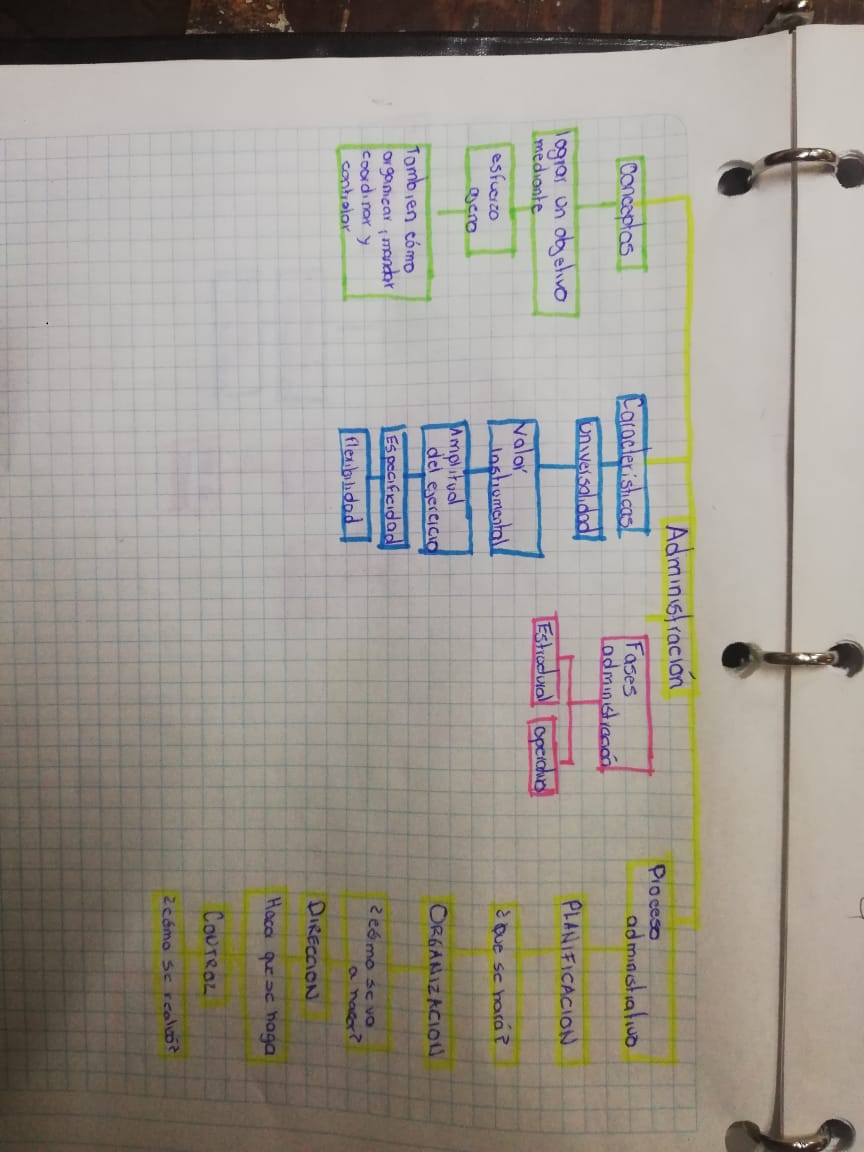 Administración
Conceptos
lograr un objetivo
mediante
esfuerzo
ajeno
Tambien cómo
organizar, mandar
coordinar y
controlar
Caracteristicas
Universalidad
Valor
instrumental
Amplitud
del ejercicio
Especificidad
flexibilidad
Fases
administración
Estructural
operativo
Proceso
administrativo
PLANIFICACION
¿que se hará?
ORGANIZACION
¿cómo se va
a hacer?
DIRECCION
Hacer que se haga
CONTROL
¿cómo se realizó?